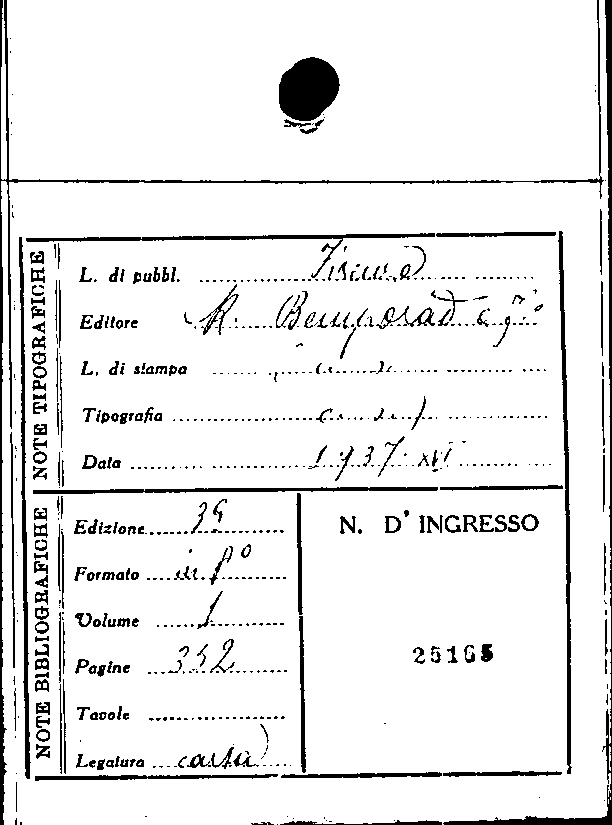 NOTE TIPOGRAFICHE
L. di pubbl. Firenze
Editore R. Bemporad e f.º
L. di stampa
Tipografia
Data 1937. XVI
NOTE BIBLIOGRAFICHE
Edizione
Formato in 8º
Volume 1
Pagine 352
Tavole
Legatura carta
N. D' INGRESSO
25165